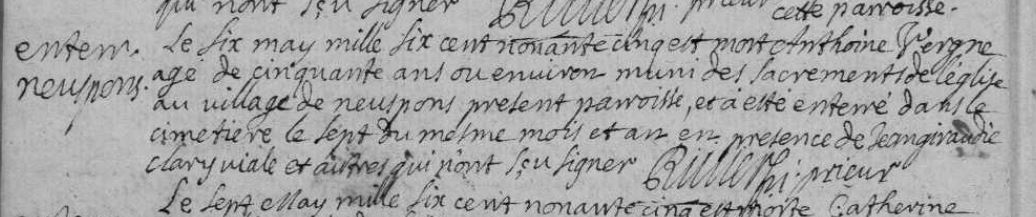 qui nont sçu signer prieur cette parroisse.
enterr. Le six may mille six cent nonante cinq est mort Anthoine Vergne
neuspons. agé de cinquante ans ou environ muni des sacrements de léglise
au village de neuspons present parroisse, et a esté enterré dans le
cimetiere le sept du mesme mois et an en presence de Jean giraudie
clary viale et autres qui n'ont sçu signer prieur
Le sept May mille six cent nonante cinq est morte Catherine